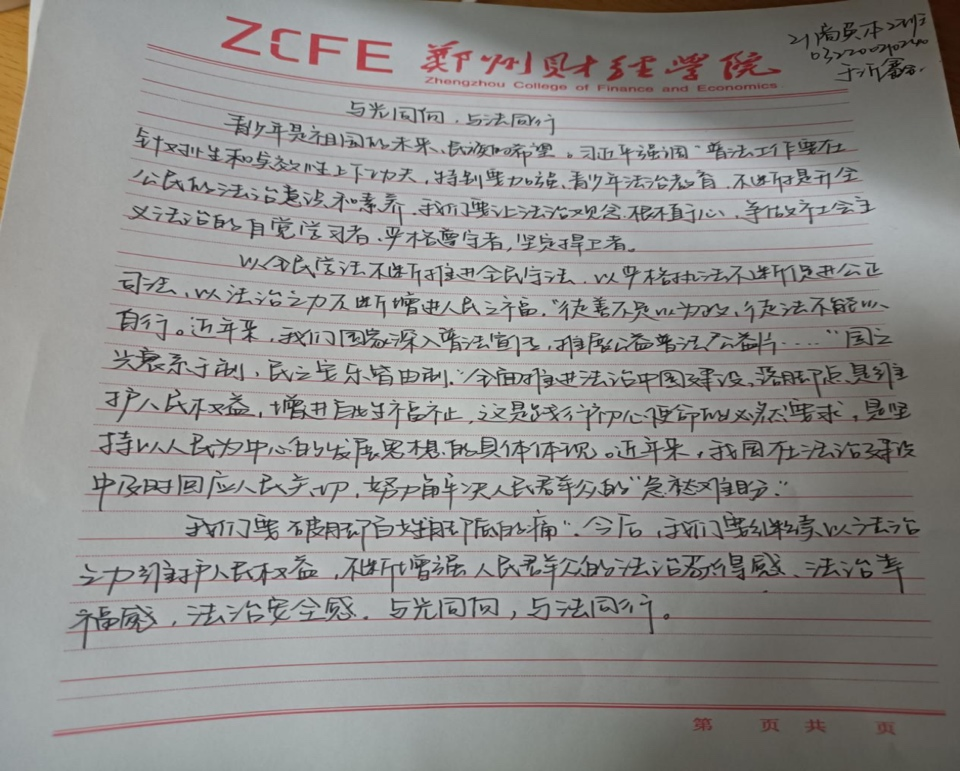 ZCFE 郑州财经学院
Zhengzhou College of Finance and Economics
21商英本2班
于沂
与光同向,与法同行
青少年是祖国的未来、民族的希望。习近平强调"普法工作要在
针对性和实效性上下功夫,特别要加强青少年法治教育,不断提升全
公民的法治意识和素养,我们要让法治观念根植于心,争做社会主
义法治的自觉学习者、严格遵守者,坚定捍卫者。
以全民学法不断推进全民守法,以严格执法不断促进公正
司法,以法治之力不断增进人民之福。"徒善不足以为政,徒法不能以
自行。近年来,我们国家深入普法宣传,推展公益普法广公益片……"国之
兴衰系于制,民之安乐皆由制。"全面推进法治中国建设,落脚点是维
护人民权益,增进民生福祉,这是践行初心使命的必然要求,是坚
持以人民为中心的发展思想的具体体现。近年来,我国在法治建设
中及时回应人民关切,努力解决人民群众的"急愁难盼"。
我们要破脚的痛"。今后,我们要继续以法治
之力维护人民权益,不断增强人民群众的法治获得感、法治幸
福感,法治安全感。与光同向,与法同行。
第 页 共 页